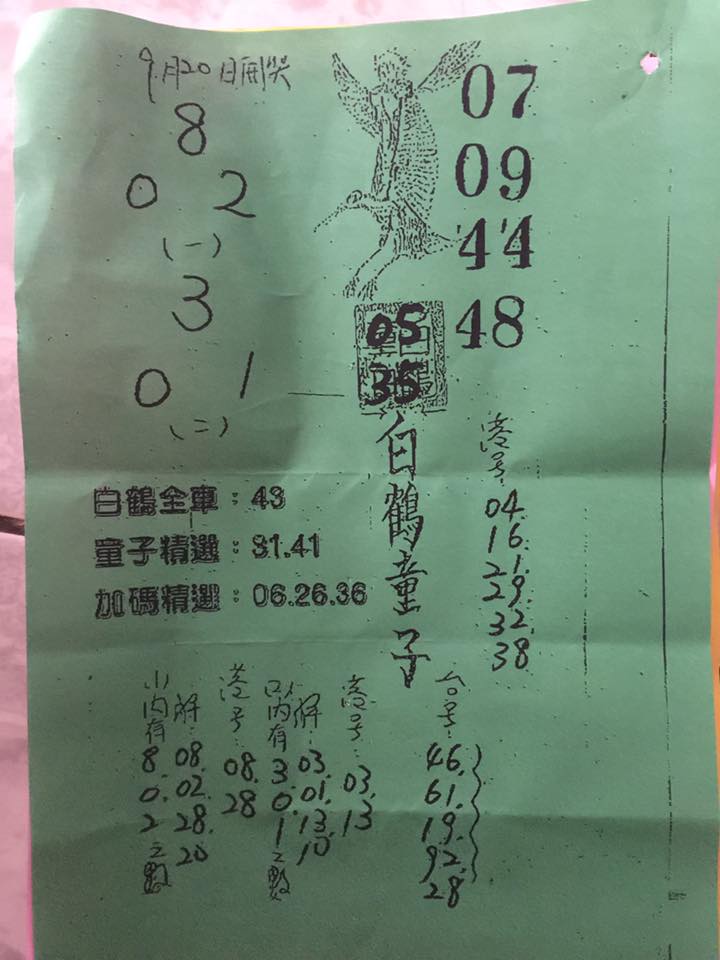 9月20日開獎
8
0 2
(一)
3
0 1
(二)
07
09
44
48
05
35
白鶴童子
港号:
04.
16.
21.
29.
32.
38
白鶴全車:43
童子精選:31.41
加碼精選:06.26.36
台号:
46.
61.
19.
92.
28
港号:
03.
13
解:
03.
01.
13.
10
以内有
3.
0.
1
之數
港号:
08.
28
解:
08.
02.
28.
20
内有
8.
0.
2
之數